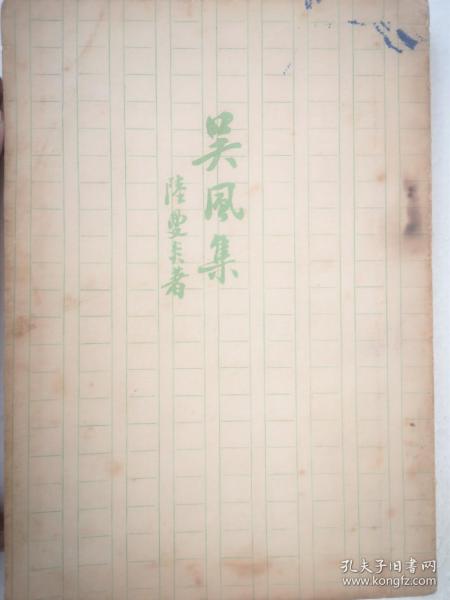 吴風集
陸曼炎著
孔夫子旧书网
www.kongfz.com